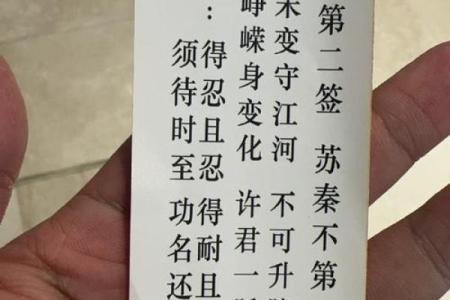 第二签 苏秦不第
未变守江河 不可升
峥嵘身变化 许君一
：得忍且忍 得耐且
须待时至 功名还